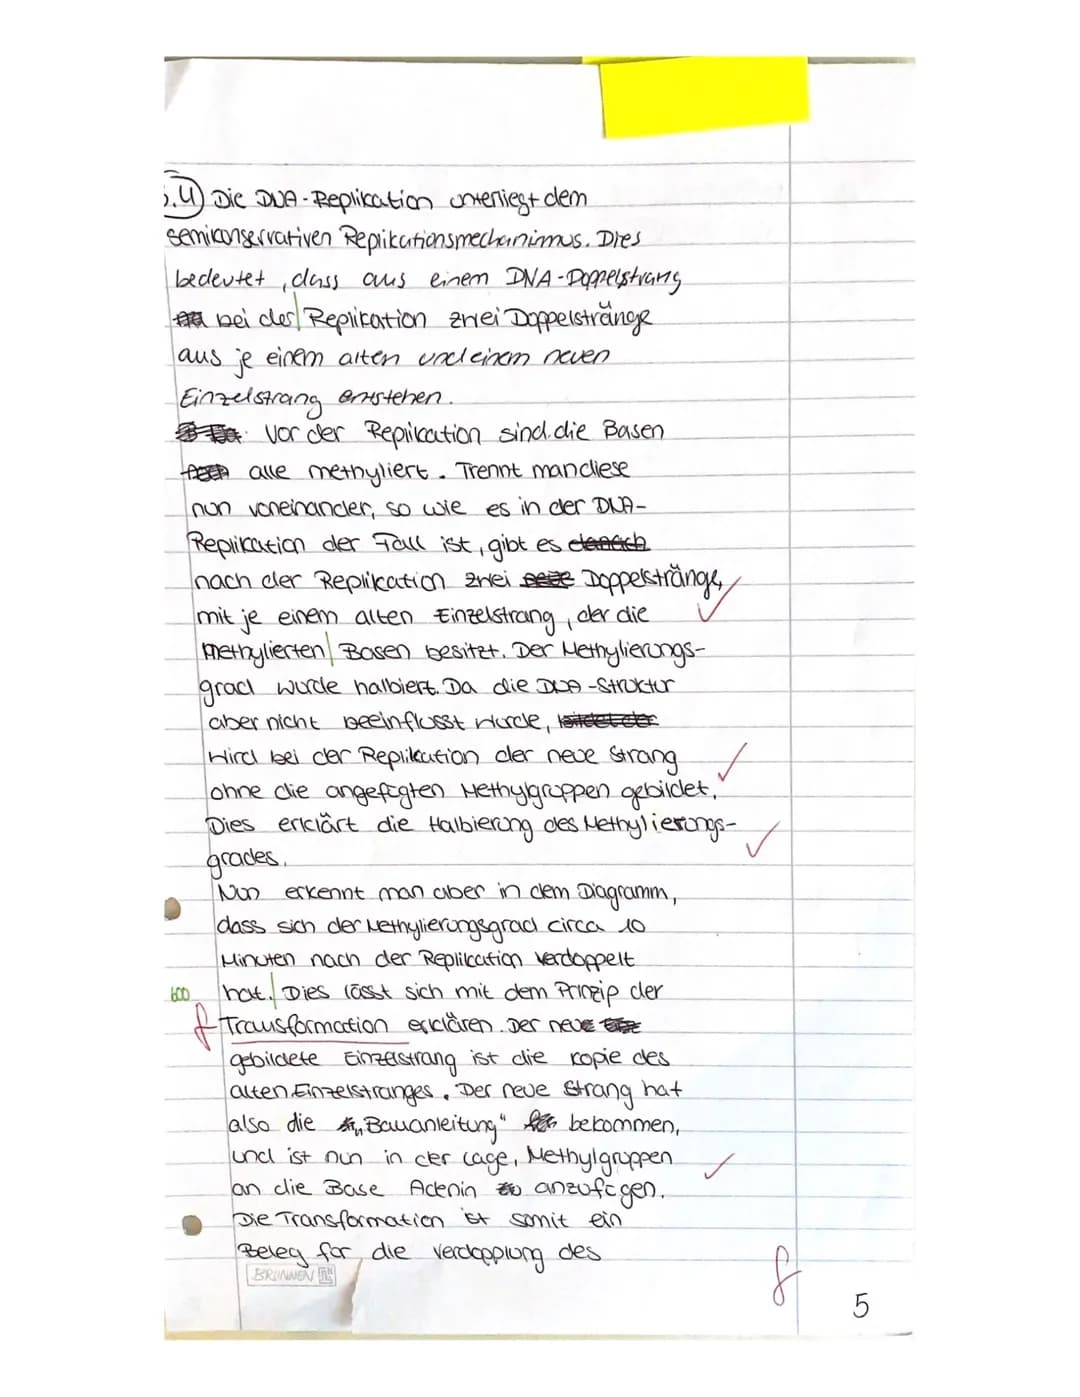 3.4) Die DNA-Replikation unterliegt dem
semikonservativen Replikationsmechanismus. Dies
bedeutet, dass aus einem DNA-Doppelstrang
bei der Replikation zwei Doppelstränge
aus je einem alten und einem neuen
Einzelstrang entstehen.
Vor der Replikation sind die Basen
alle methyliert. Trennt man diese
nun voneinander, so wie es in der DNA-
Replikation der Fall ist, gibt es danach
nach der Replikation zwei neue Doppelstränge,
mit je einem alten Einzelstrang, der die
methylierten Basen besitzt. Der Methylierungs-
grad wurde halbiert. Da die DNA-Struktur
aber nicht beeinflusst wurde, bildet der
wird bei der Replikation der neue Strang
ohne die angefügten Methylgruppen gebildet.
Dies erklärt die Halbierung des Methylierungs-
grades.
Nun erkennt man aber in dem Diagramm,
dass sich der Methylierungsgrad circa 10
Minuten nach der Replikation verdoppelt
600 hat. Dies lässt sich mit dem Prinzip der
f Transformation erklären. Der neue
gebildete Einzelstrang ist die Kopie des
alten Einzelstranges. Der neue Strang hat
also die „Bauanleitung" bekommen,
und ist nun in der Lage, Methylgruppen
an die Base Adenin zu anzufügen.
Die Transformation ist somit ein
Beleg für die Verdopplung des
f
BRUNNEN
5